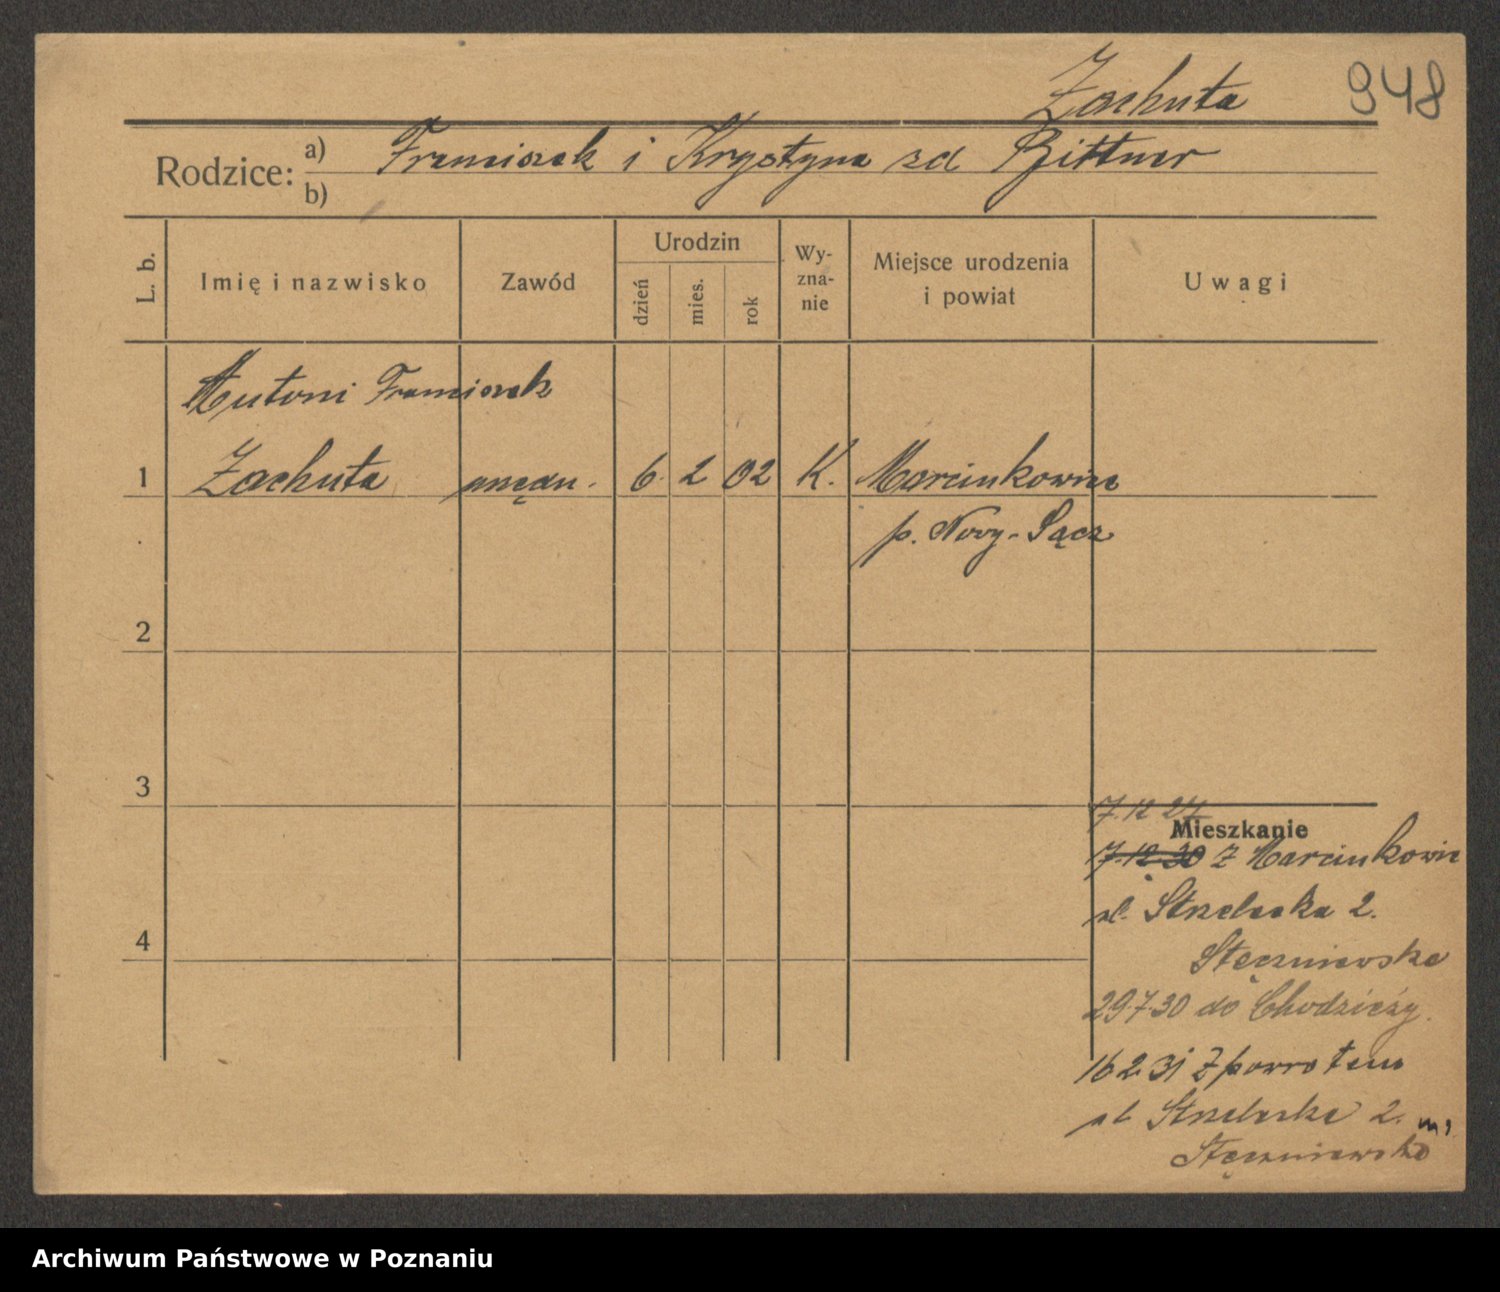 Zachuta 948
Rodzice: a) Franciszek i Krystyna zd Bittner
b)
L. b.
Imię i nazwisko
Zawód
Urodzin
dzień
mies.
rok
Wy-
zna-
nie
Miejsce urodzenia
i powiat
Uwagi
Antoni Franciszek
1 Zachuta urzędn. 6. 2 02 K. Marcinkowice
p. Nowy-Sącz
2
3
4
7.12 27
Mieszkanie
7.12.30 Z Marcinkowic
ul. Strzelecka 2.
Stęczniewska
29.7.30 do Chodzieży.
16 2 31 Z powrotem
ul Strzelecka 2. m1
Stęczniewska
Archiwum Państwowe w Poznaniu